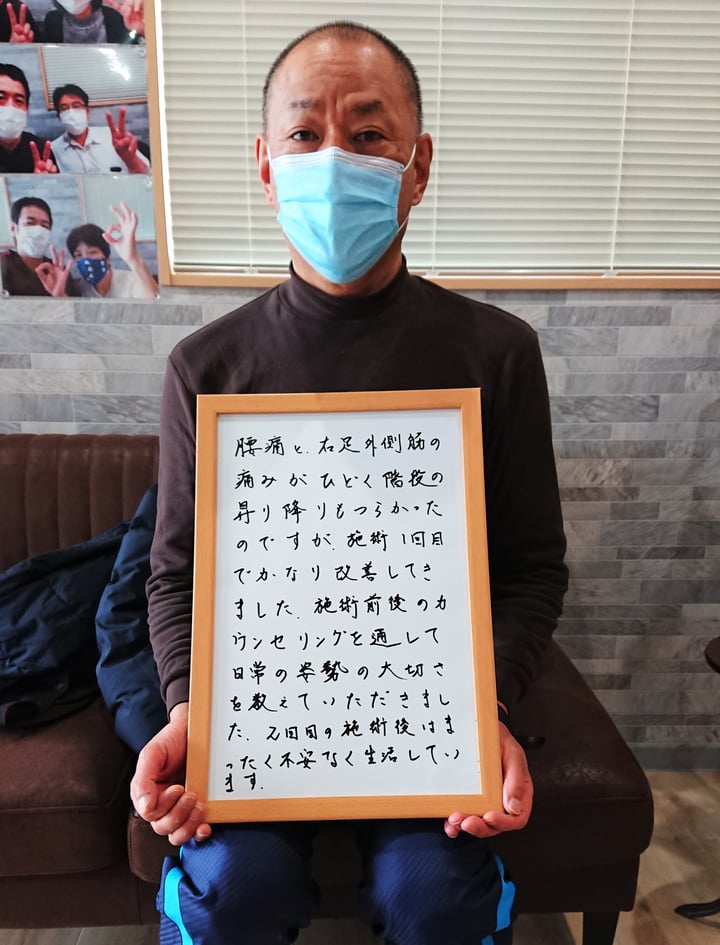 腰痛と、右足外側筋の
痛みがひどく階段の
昇り降りもつらかった
のですが、施術1回目
でかなり改善してき
ました。施術前後のカ
ウンセリングを通して
日常の姿勢の大切さ
を教えていただきまし
た。2回目の施術後はま
ったく不安なく生活してい
ます。